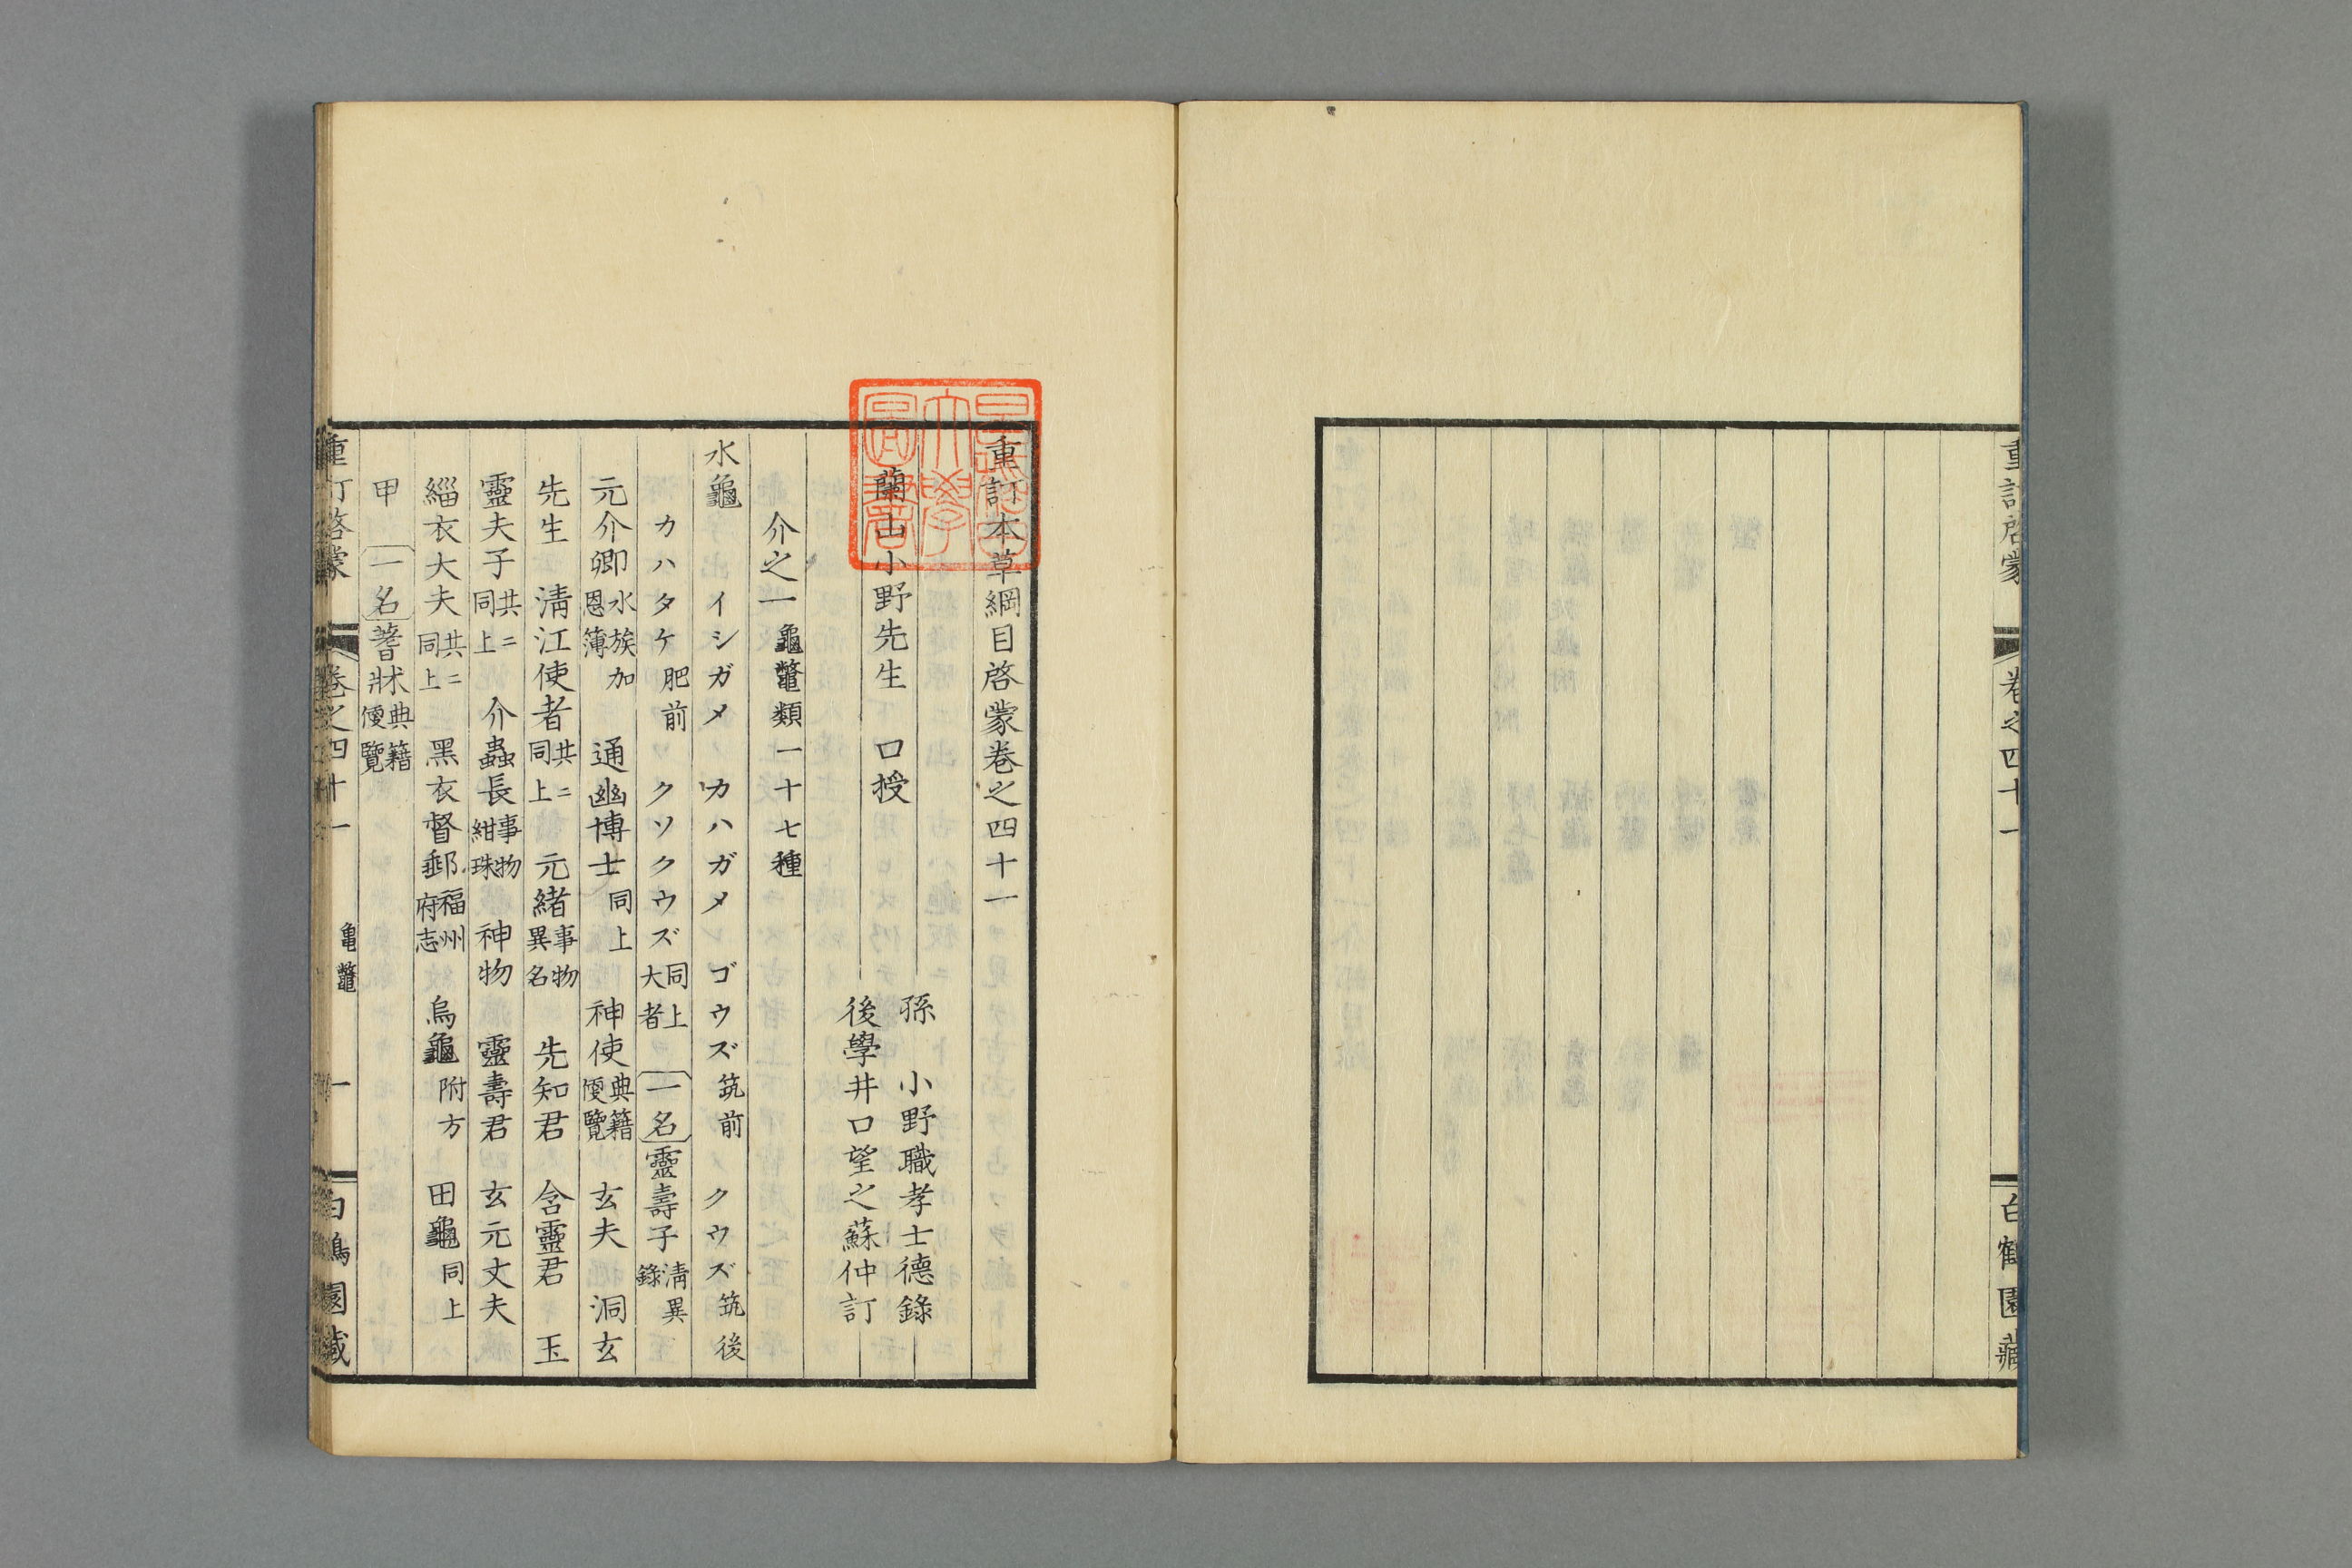 重訂啓蒙 卷之四十一 白鶴園藏
重訂本草綱目啓蒙卷之四十一
蘭山小野先生 口授
孫 小野職孝士德錄
後學井口望之蘇仲訂
介之一 龜鼈類一十七種
水龜 イシガメ カハガメ ゴウズ筑前 クウズ筑後
カハタケ肥前 クソクウズ同上大者 一名靈壽子清異錄
元介卿水族加恩簿 通幽博士同上 神使典籍便覽 玄夫 洞玄
先生 清江使者共ニ同上 元緒事物異名 先知君 含靈君 玉
靈夫子共ニ同上 介蟲長事物紺珠 神物 靈壽君 玄元丈夫
緇衣大夫共ニ同上 黑衣督郵福州府志 烏龜附方 田龜同上
甲 一名蓍牀典籍便覽
重訂啓蒙 卷之四十一 龜鼈 一 白鶴園藏
早稻田大學圖書